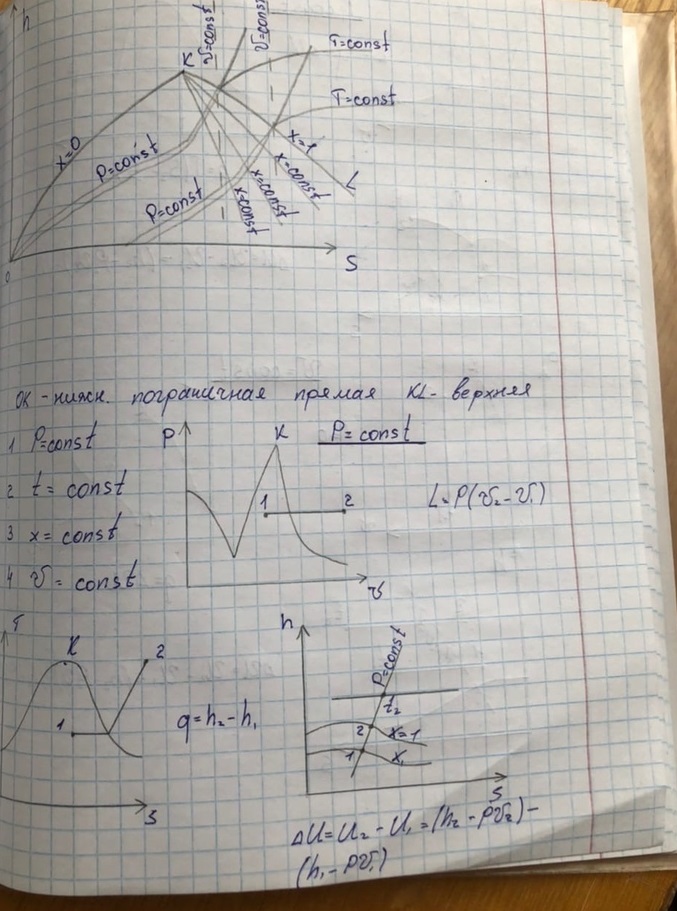 h
K
v=const
v=const
T=const
T=const
x=0
P=const
P=const
x=1
x=const
x=const
x=const
L
0
S
OK - нижн. пограничная прямая KL- верхняя
1 P=const
2 t = const
3 x = const
4 v = const
P
K
P = const
1
2
v
L=P(v₂-v₁)
T
K
1
2
S
q=h₂-h₁
h
P=const
t₂
2
x=1
1
x₁
S
ΔU=U₂-U₁=(h₂-pv₂)-
(h₁-pv₁)